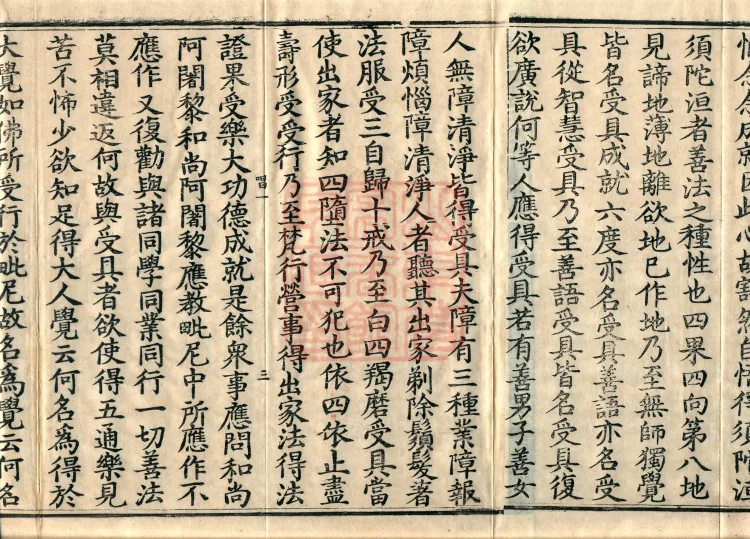 須陀洹者善法之種性也四果四向第八地
見諦地薄地離欲地已作地乃至無師獨覺
皆名受具成就六度亦名受具善語亦名受
具從智慧受具乃至善語受具皆名受具復
欲廣說何等人應得受具若有善男子善女
人無障清淨皆得受具夫障有三種業障報
障煩惱障清淨人者聽其出家剃除鬚髮著
法服受三自歸十戒乃至白四羯磨受具當
使出家者知四墮法不可犯也依四依止盡
壽形受受行乃至梵行營事得出家法得法
唱一 三
證果受樂大功德成就是餘衆事應問和尚
阿闍黎和尚阿闍黎應教毗尼中所應作不
應作又復勸與諸同學同業同行一切善法
莫相違返何故與受具者欲使得五通樂見
苦不怖少欲知足得大人覺云何名爲得於
大覺如佛所受行於毗尼故名爲覺云何名